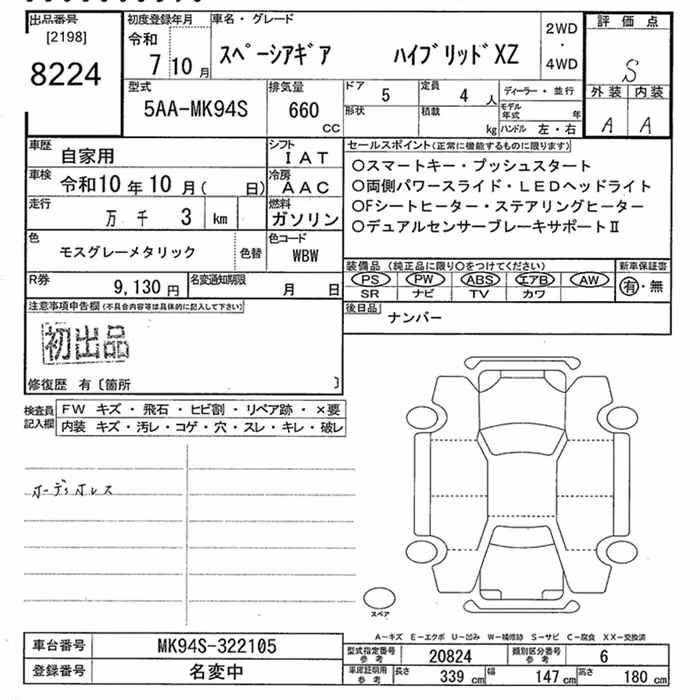 出品番号
[2198]
8224
初度登録年月
令和
7 10 月
車名・グレード
スペーシアギア ハイブリッドXZ
2WD
・
4WD
評価点
S
外装 内装
A A
型式
5AA-MK94S
排気量
660
CC
ドア
5
定員
4 人
形状
積載
kg
ディーラー・並行
モデル
年式 年
ハンドル 左・右
車歴
自家用
シフト
IAT
車検
令和10年10月( 日)
冷房
AAC
走行
万 千 3 km
燃料
ガソリン
色
モスグレーメタリック
色替
色コード
WBW
R券
9,130 円
名変通知期限
月 日
セールスポイント(正常に機能するものに限ります)
○スマートキー・プッシュスタート
○両側パワースライド・LEDヘッドライト
○Fシートヒーター・ステアリングヒーター
○デュアルセンサーブレーキサポートⅡ
装備品(純正品に限り○をつけてください)
PS PW ABS エアB AW
SR ナビ TV カワ
新車保証書
有・無
後日品
ナンバー
注意事項申告欄(不具合内容等は具体的に記入して下さい)
初出品
修復歴 有〔箇所 〕
検査員
記入欄
FW キズ・飛石・ヒビ割・リペア跡・×要
内装 キズ・汚レ・コゲ・穴・スレ・キレ・破レ
オーディオレス
スペア
A−キズ E−エクボ U−凹み W−補修跡 S−サビ C−腐食 XX−交換済
車台番号
MK94S-322105
登録番号
名変中
型式指定番号
参考
20824
類別区分番号
参考
6
車庫証明用
参考
長さ
339 cm
幅
147 cm
高さ
180 cm